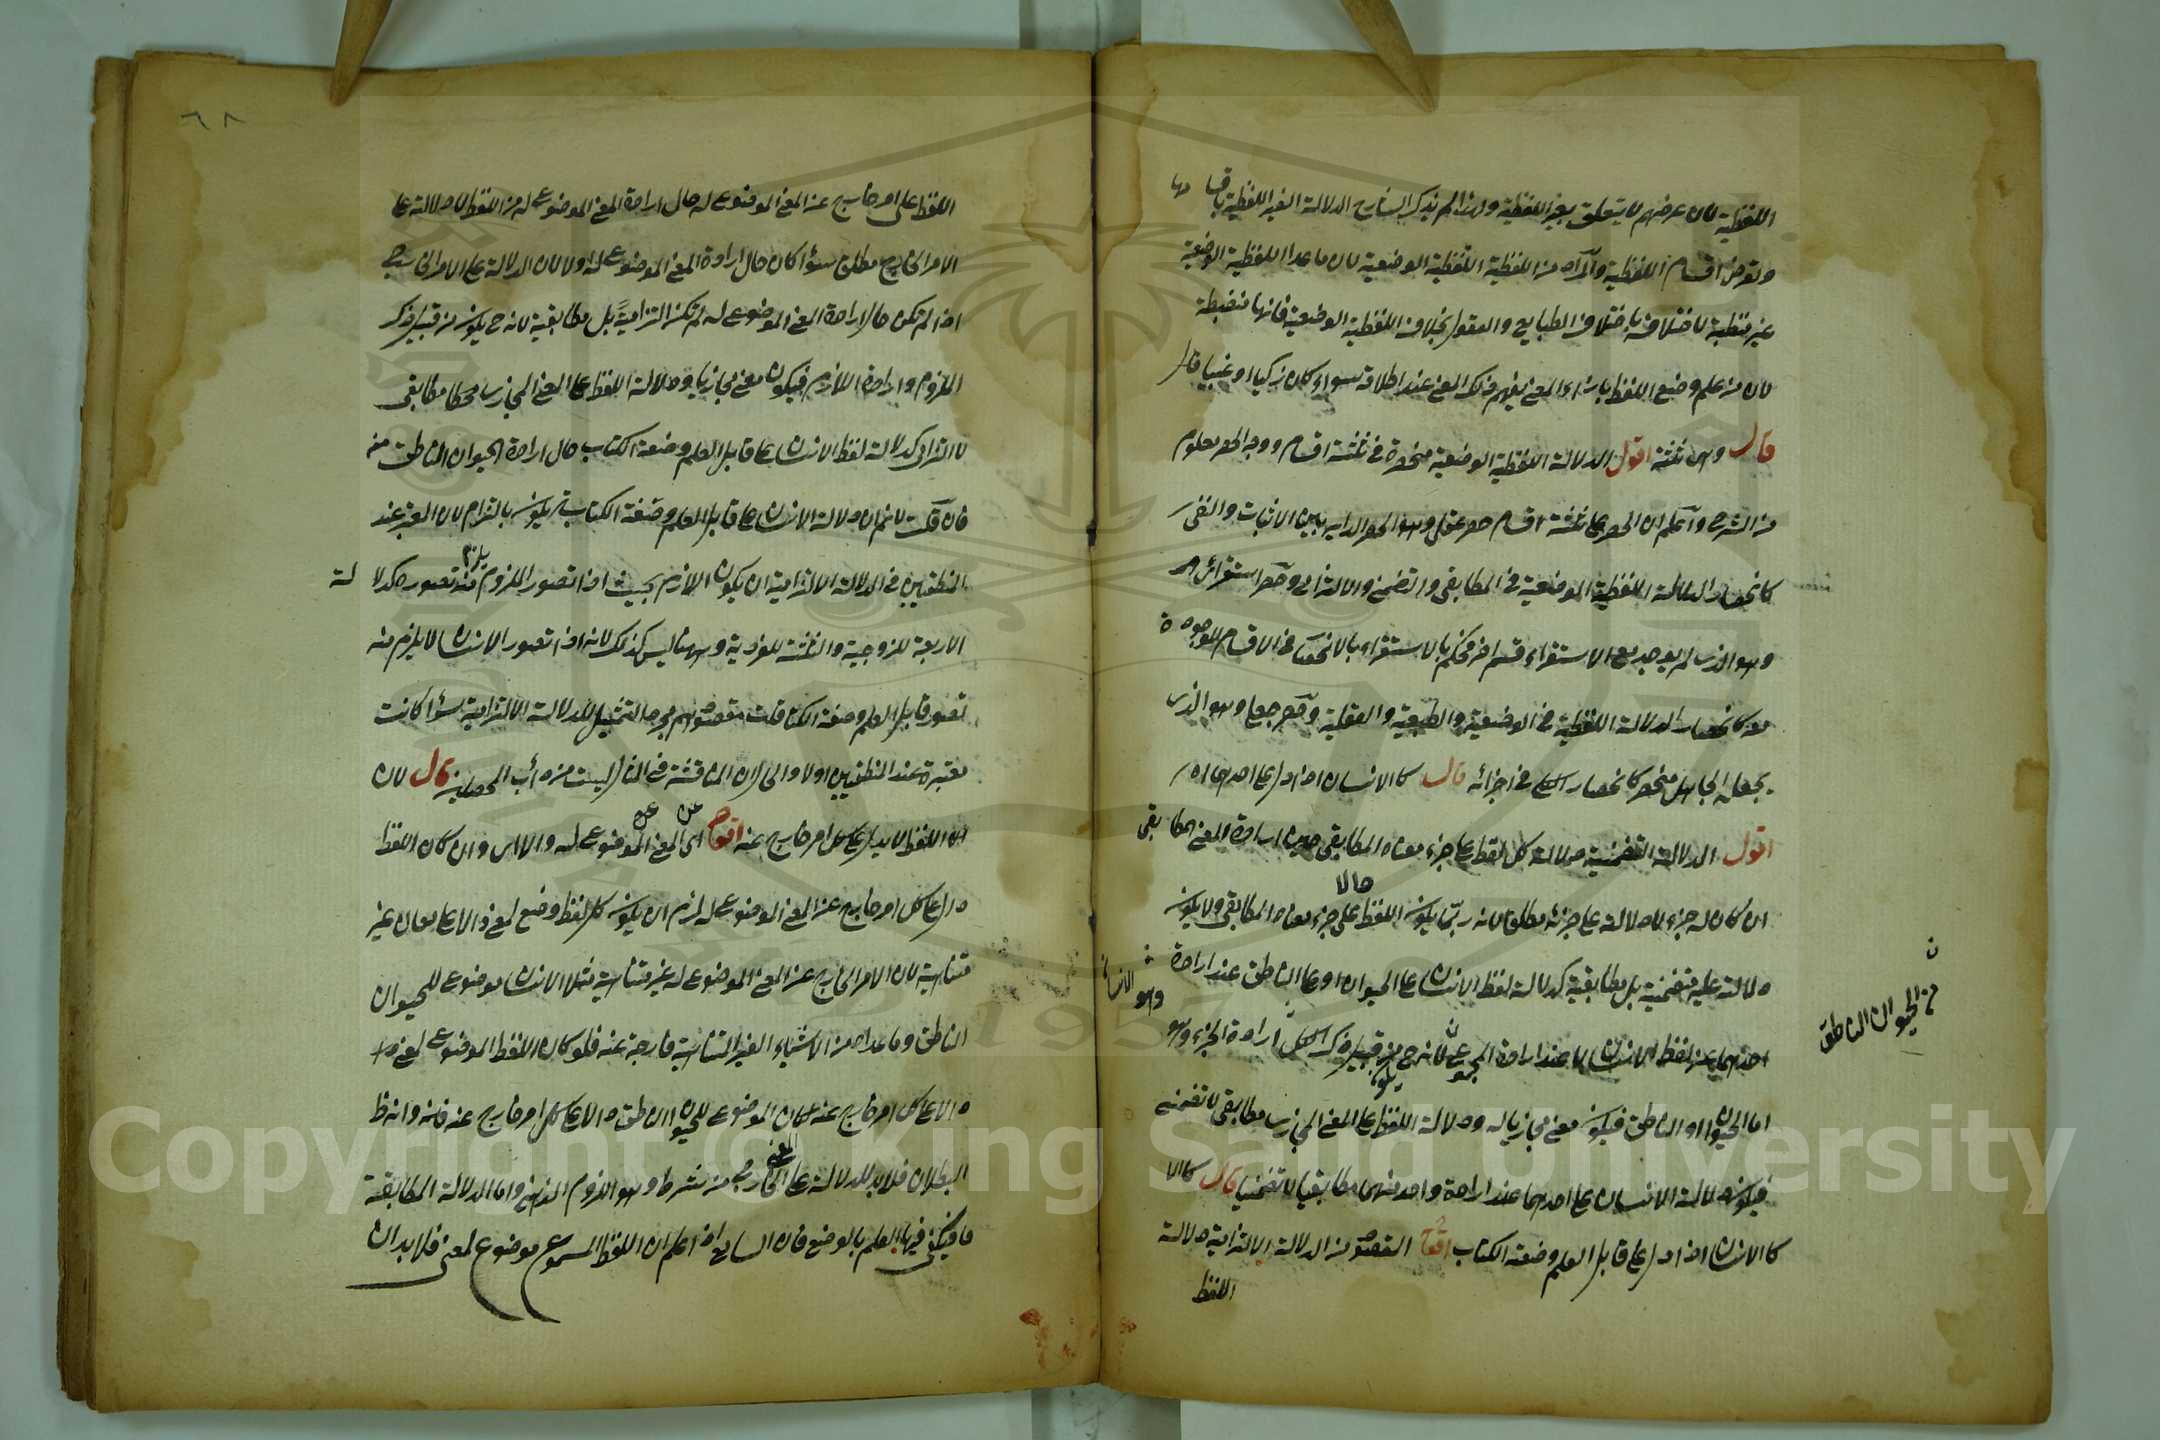 اللفظية لان غرضهم لا يتعلق بغير اللفظية ولهذا لم يذكر الشارح الدلالة الغير اللفظية باقسامها
وتعرض اقسام اللفظية والمراد من اللفظية اللفظية الوضعية لان ماعدا اللفظية الوضعية
غير منضبطة لاختلافه باختلاف الطبايع والعقول بخلاف اللفظية الوضعية فانها منضبطة
لان من علم وضع اللفظ بازاء المعنى يفهم ذلك المعنى عند اطلاقه سواء كان زكيا او غبيا
قال وهي ثلثة اقول الدلالة اللفظية الوضعية منحصرة في ثلثة اقسام ووجه الحصر معلوم
من الشرح واعلم ان الحصر على ثلثة اقسام حصر عقلي وهو الحصر الداير بين الاثبات والنفي
كانحصار الدلالة اللفظية الوضعية في المطابقي والتضمني والالتزامي وحصر استقرائي
وهو الذي لم يوجد مع الاستقراء قسم اخر فحكم بالاستقراء بالانحصار في الاقسام الموجودة
معه كانحصار الدلالة اللفظية في الوضعية والطبيعية والعقلية وحصر جعلي وهو الذي
يجعله الجاعل منحصر كانحصار الكل في اجزائه قال كالانسان اذا دل على احدهما اه
اقول الدلالة التضمنية دلالة كل لفظ على جزء معناه المطابقي حين ارادة المعنى المطابقي
ان كان له جزء لا دلالة على جزئه مطلق لانه ربما يكون اللفظ حالا على جزء معناه المطابقي ولا يكون
دلالته عليه تضمنية بل مطابقية كدلالة لفظ الانسان على الحيوان او على الناطق عند ارادة
احدهما عن لفظ الانسان لا عند ارادة المجموع لانه ح يكون من قبيل ذكر الكل ارادة الجزء وهو
وهو الانسان
من الحيوان الناطق
اما الحيوان او الناطق فيكون معنى مجازيا له ودلالة اللفظ على المعنى المجازي مطابقي لا تضمني
فيكون دلالة الانسان على احدهما عند ارادة واحد منهما مطابقيا لا تضمنيا قال
كالانسان اذا دل على قابل العلم وصنعة الكتاب اقول المقصود من الدلالة الالتزامية دلالة
اللفظ
٦٨
اللفظ على امر خارج عن المعنى الموضوع له حال ارادة المعنى الموضوع له من اللفظ لا دلالة على
الامر الخارج مطلق سواء كان حال ارادة المعنى الموضوع له او لا لان الدلالة على الامر الخارج
اذا لم تكن حال ارادة المعنى الموضوع له لم تكن التزامية بل مطابقية لانه ح يكون من قبيل ذكر
الملزوم وارادة اللازم فيكون معنى مجازيا ودلالة اللفظ على المعنى المجازي مطابقي
لا التزامي كدلالة لفظ الانسان على قابل العلم وصنعة الكتاب حال ارادة الحيوان الناطق منه
فان قلت لا نم ان دلالة الانسان على قابل العلم وصنعة الكتابة يكون بالتزام لان المعتبر عند
المنطقيين في الدلالة الالتزامية ان يكون اللازم بحيث اذا تصور الملزوم يلزم منه تصوره كدلالة
الاربعة للزوجية والثلثة للفردية وههنا ليس كذلك لانه اذا تصور الانسان لا يلزم منه
تصور قابل العلم وصنعة الكتا قلت مقصودهم مجرد التمثيل للدلالة الالتزامية سواء كانت
معتبرة عند المنطقيين او لا والحال ان المناقشة في المثال ليست من دأب المحصلين قال لان
اه اللفظ لا يدل على كل امر خارج عنه اقول اى عن المعنى الموضوع له والا اى وان كان اللفظ
دال على كل امر خارج عن المعنى الموضوع له لزم ان يكون كل لفظ وضع لمعنى دالا على معان غير
متناهية لان الامر الخارج عن المعنى الموضوع له غير متناهية مثلا الانسان موضوع للحيوان
الناطق وما عداه من الاشياء الغير المتناهية خارجة عنه فلو كان اللفظ الموضوع لمعنى
دالا على كل امر خارج عنه لكان الموضوع للحيوان الناطق دالا على كل امر خارج عنه فانه وانه ظ
البطلان فلا بد للدلالة على المعنى الخارجي من شرط وهو اللزوم الذهني واما الدلالة المطابقة
فيكفي فيها العلم بالوضع فان السامع اذا علم ان اللفظ المسموع موضوع لمعنى فلا بد ان
Copyright © King Saud University